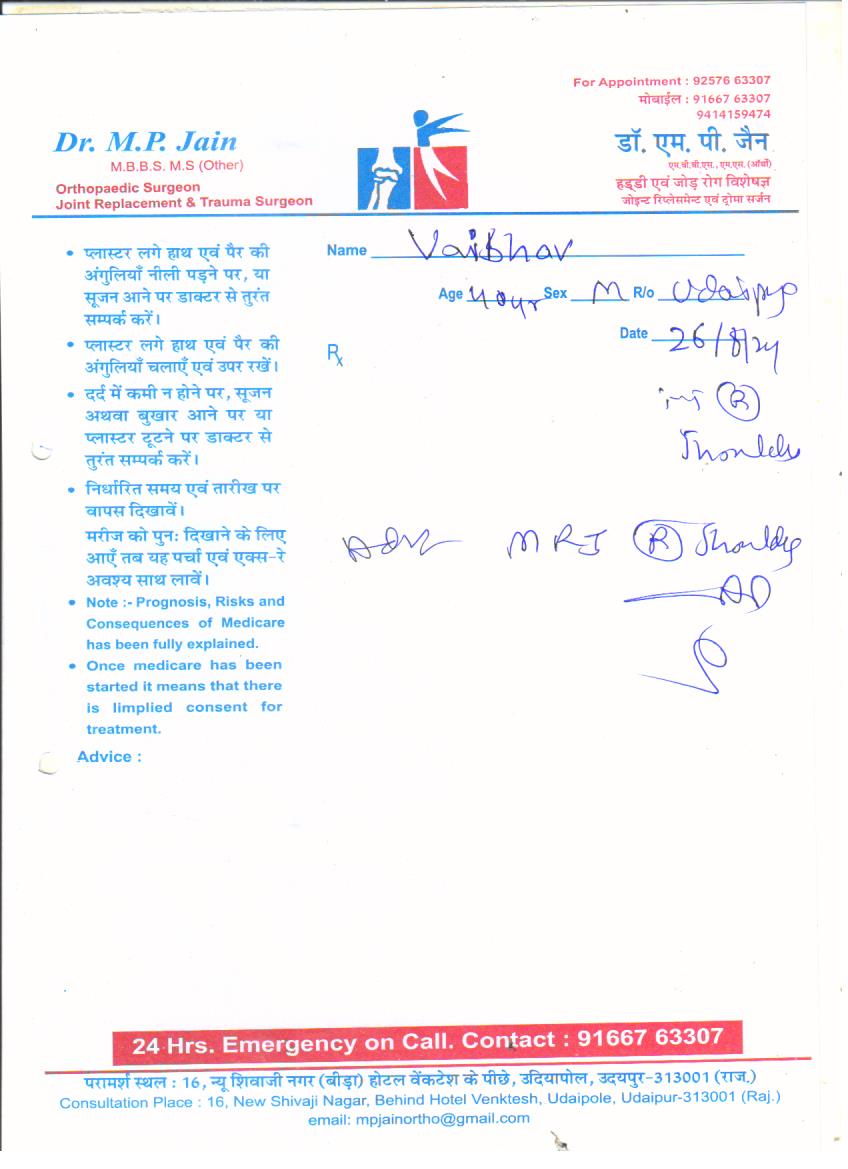 For Appointment : 92576 63307
मोबाईल : 91667 63307
9414159474
Dr. M.P. Jain
M.B.B.S. M.S (Other)
Orthopaedic Surgeon
Joint Replacement & Trauma Surgeon
डॉ. एम. पी. जैन
एम.बी.बी.एस., एम.एस. (ऑर्थो)
हड्डी एवं जोड़ रोग विशेषज्ञ
जोइन्ट रिप्लेसमेन्ट एवं ट्रोमा सर्जन
• प्लास्टर लगे हाथ एवं पैर की
अंगुलियाँ नीली पड़ने पर, या
सूजन आने पर डाक्टर से तुरंत
सम्पर्क करें।
• प्लास्टर लगे हाथ एवं पैर की
अंगुलियाँ चलाएँ एवं उपर रखें।
• दर्द में कमी न होने पर, सूजन
अथवा बुखार आने पर या
प्लास्टर टूटने पर डाक्टर से
तुरंत सम्पर्क करें।
• निर्धारित समय एवं तारीख पर
वापस दिखावें।
मरीज को पुनः दिखाने के लिए
आएँ तब यह पर्चा एवं एक्स-रे
अवश्य साथ लावें।
• Note :- Prognosis, Risks and
Consequences of Medicare
has been fully explained.
• Once medicare has been
started it means that there
is limplied consent for
treatment.
Advice :
Name Vaibhav
Age 40yr Sex M R/o Udaipur
Date 26/8/24
℞
(R)
Shoulder
Adv MRI (R) Shoulder
24 Hrs. Emergency on Call. Contact : 91667 63307
परामर्श स्थल : 16, न्यू शिवाजी नगर (बीड़ा) होटल वेंकटेश के पीछे, उदियापोल, उदयपुर-313001 (राज.)
Consultation Place : 16, New Shivaji Nagar, Behind Hotel Venktesh, Udaipole, Udaipur-313001 (Raj.)
email: mpjainortho@gmail.com